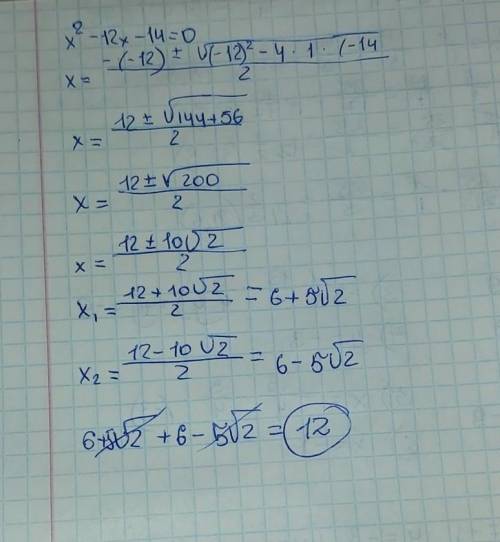 x² - 12x - 14 = 0
x = (-(-12) ± √((-12)² - 4 · 1 · (-14)) / 2
x = (12 ± √(144 + 56)) / 2
x = (12 ± √200) / 2
x = (12 ± 10√2) / 2
x₁ = (12 + 10√2) / 2 = 6 + 5√2
x₂ = (12 - 10√2) / 2 = 6 - 5√2
6 + 5√2 + 6 - 5√2 = 12